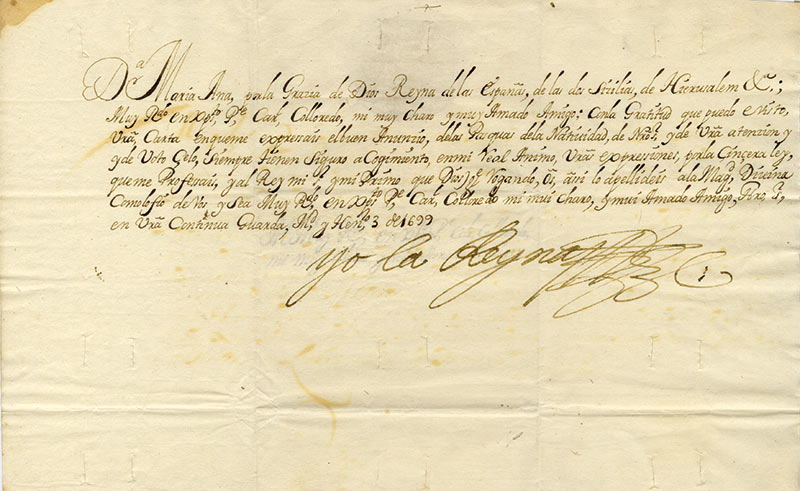 Dª Maria Ana, porla Grazia de Dios Reyna delas Españas, de las dos Sicilias, de Hierusalem &c.;
Muy Rdo en Xpto Pe Car. Colloredo, mi muy Charo y muy Amado Amigo: Conla Gratitud que puedo é Visto,
Vrã. Carta enqueme expressais elbuen Anunzio, delas Pasquas dela Natividad, de Nro Sr; y de Vrã atenzion y
y de Vrõ Çelo, Siempre tienen Seguro aCogimiento, enmi Real Animo, Vrãs expresiones, porla Cinçera ley,
queme Profesais, y al Rey mi Sr y mi Primo que Dios ge Rogando, assi lo apellideis ala Magd Divina
Muy Rdo en Xpto Pe Car. Colloredo mi mui Charo, y mui Amado Amigo, Nro Sr
en Vrã Continua Guarda, Md y Heno 3 de 1699
yo la Reyna